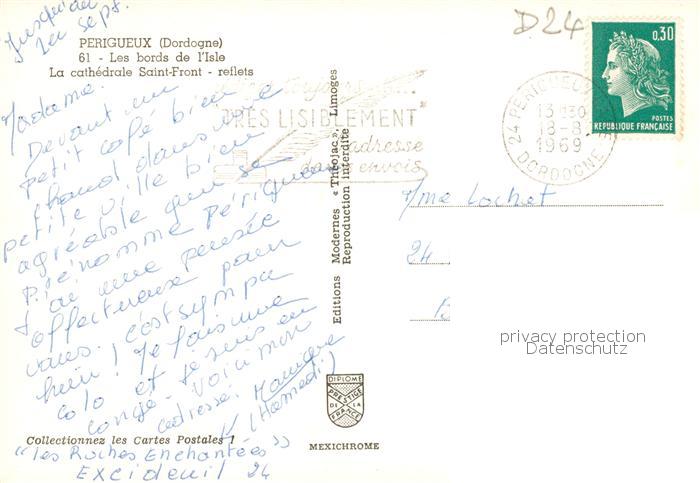 Jusqu'au
1er sept.
PERIGUEUX (Dordogne)
61 - Les bords de l'Isle
La cathédrale Saint-Front - reflets
Madame.
Devant un
petit café bien
chaud dans une
petite ville bien
agréable qui se
prénomme Périgueux
j'ai une pensée
affectueuse pour
vous. C'est sympa
hein! Je fais une
colo et je suis en
congé. Voici mon
adresse:
(Hamedi)
"Les Roches Enchantées"
EXCIDEUIL 24
Collectionnez les Cartes Postales !
Editions Modernes « Théojac », Limoges
Reproduction interdite
DIPLOME
PRESTIGE
DE LA
FRANCE
MEXICHROME
D24
TRÈS LISIBLEMENT
adresse
envois
24 PERIGUEUX
13H30
18-8
1969
DORDOGNE
0,30
POSTES
REPUBLIQUE FRANÇAISE
Mme Lochet
24
privacy protection
Datenschutz